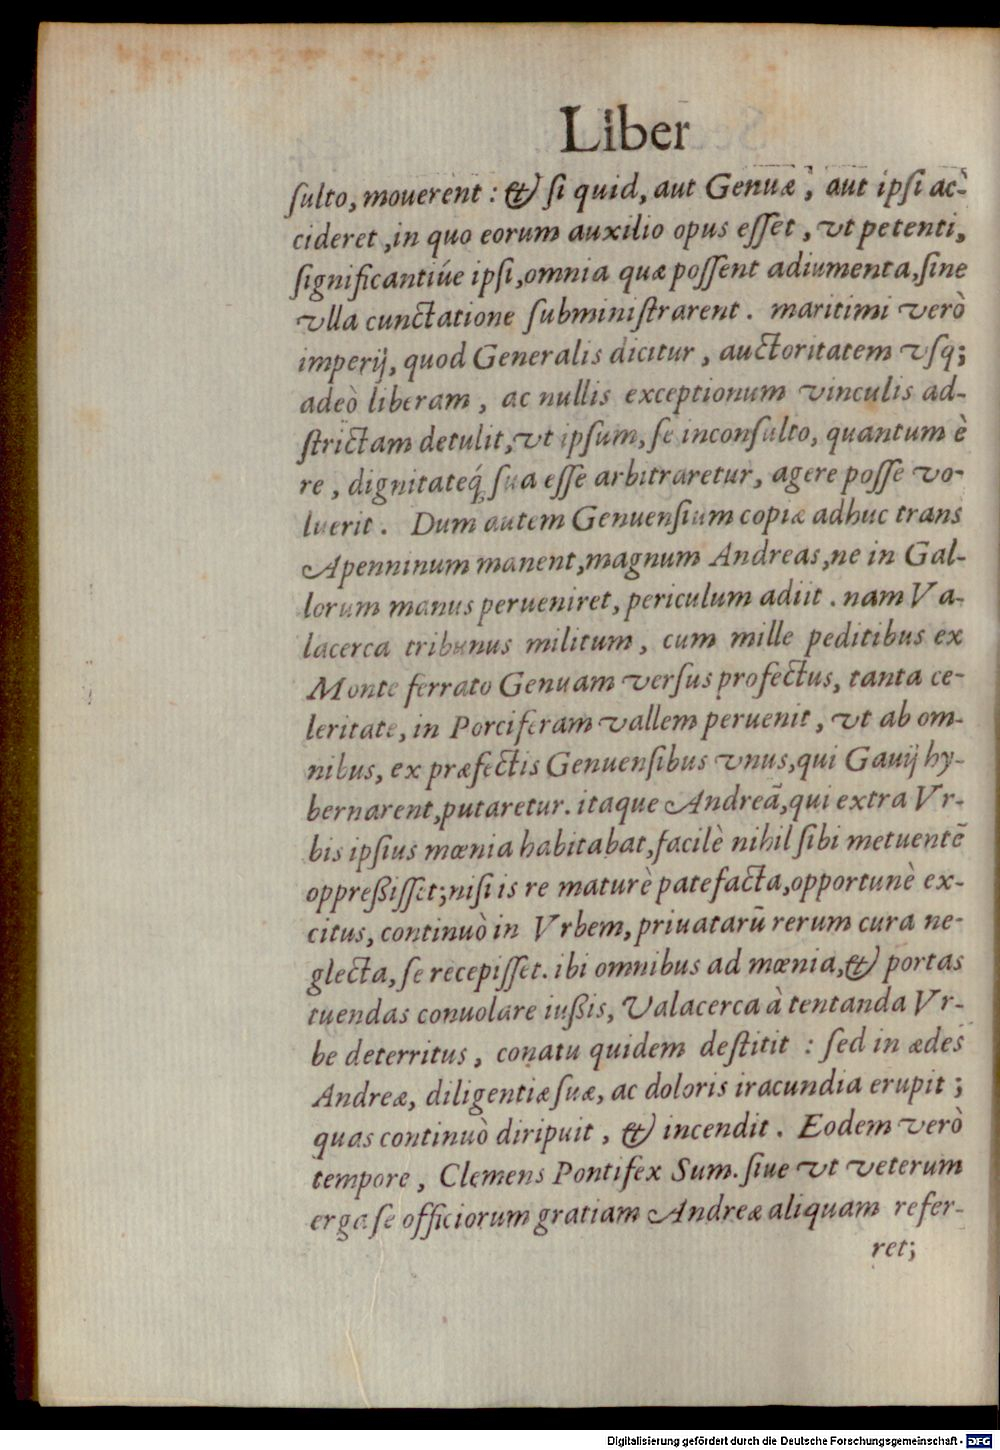 Liber
ſulto, mouerent : & ſi quid, aut Genuæ, aut ipſi ac-
cideret, in quo eorum auxilio opus eſſet, vt petenti,
ſignificantiúe ipſi, omnia quæ poſſent adiumenta, ſine
vlla cunctatione ſubminiſtrarent. maritimi verò
imperij, quod Generalis dicitur, auctoritatem vſq;
adeò liberam, ac nullis exceptionum vinculis ad-
ſtrictam detulit, vt ipſum, ſe inconſulto, quantum è
re, dignitateq́; ſua eſſe arbitraretur, agere poſſe vo-
luerit. Dum autem Genuenſium copiæ adhuc trans
Apenninum manent, magnum Andreas, ne in Gal-
lorum manus perueniret, periculum adiit. nam Va-
lacerca tribunus militum, cum mille peditibus ex
Monte ferrato Genuam verſus profectus, tanta ce-
leritate, in Porciferam vallem peruenit, vt ab om-
nibus, ex præfectis Genuenſibus vnus, qui Gauij hy-
bernarent, putaretur. itaque Andreã, qui extra Vr-
bis ipſius mœnia habitabat, facilè nihil ſibi metuentẽ
oppreßiſſet; niſi is re maturè patefacta, opportunè ex-
citus, continuò in Vrbem, priuatarũ rerum cura ne-
glecta, ſe recepiſſet. ibi omnibus ad mœnia, & portas
tuendas conuolare iußis, Valacerca à tentanda Vr-
be deterritus, conatu quidem deſtitit : ſed in ædes
Andreæ, diligentiæ ſuæ, ac doloris iracundia erupit;
quas continuò diripuit, & incendit. Eodem verò
tempore, Clemens Pontifex Sum. ſiue vt veterum
erga ſe officiorum gratiam Andreæ aliquam refer-
ret;
Digitalisierung gefördert durch die Deutsche Forschungsgemeinschaft - DFG